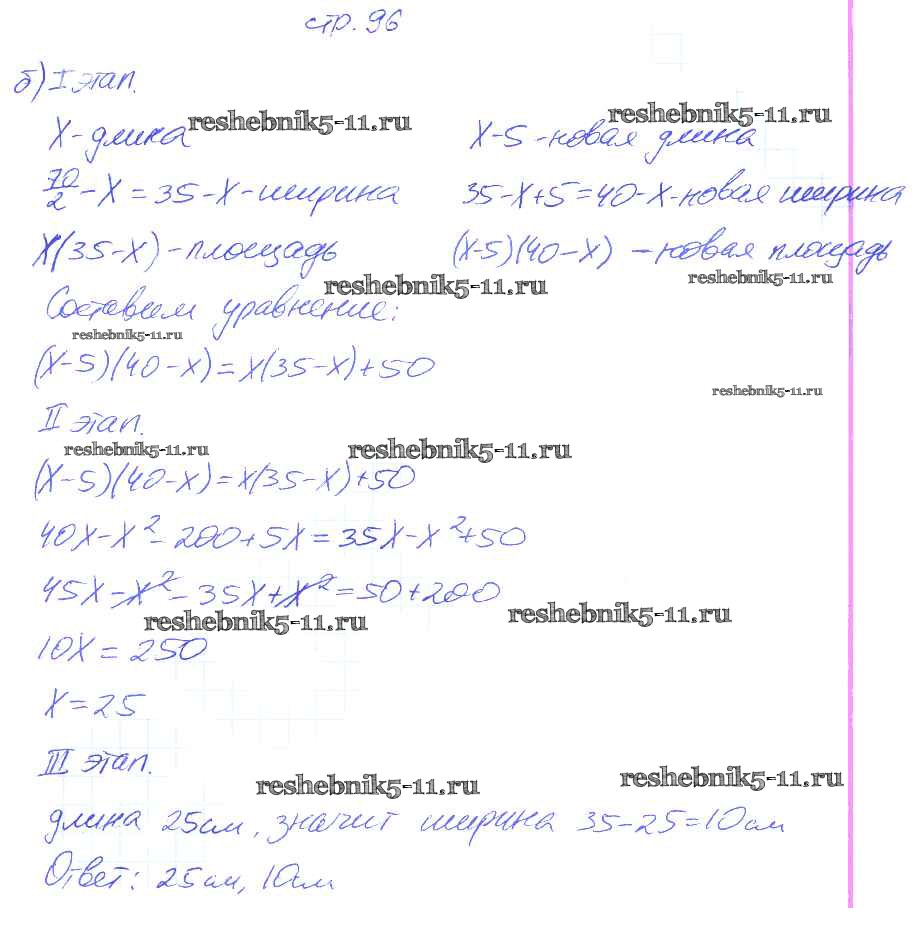 стр. 96
б) I этап.
X - длина reshebnik5-11.ru reshebnik5-11.ru X-5 - новая длина
70/2 - X = 35 - X - ширина 35-X+5=40-X-новая ширина
X(35-X) - площадь (X-5)(40-X) - новая площадь
reshebnik5-11.ru reshebnik5-11.ru
Составим уравнение:
reshebnik5-11.ru
(X-5)(40-X)=X(35-X)+50
reshebnik5-11.ru
II этап.
reshebnik5-11.ru reshebnik5-11.ru
(X-5)(40-X)=X(35-X)+50
40X-X²-200+5X=35X-X²+50
45X-X²-35X+X²=50+200
reshebnik5-11.ru reshebnik5-11.ru
10X=250
X=25
III этап.
reshebnik5-11.ru reshebnik5-11.ru
длина 25см, значит ширина 35-25=10см
Ответ: 25см, 10см